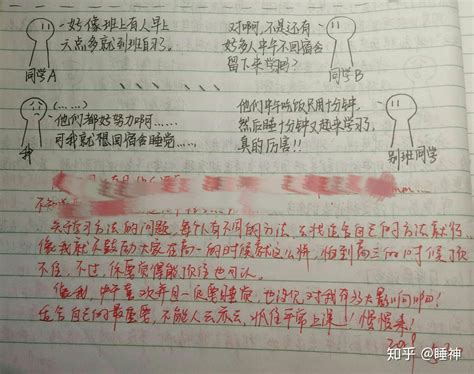 好像班上有人早上
六点多就到班自习了。
同学A
对啊,不是还有
好多人中午不回宿舍
留下来学习吗?
同学B
(……)
他们都好努力啊……
可我就想回宿舍睡觉……
我
他们中午吃饭只用十分钟,
然后睡十分钟又起来学习了,
真的厉害!!
别班同学
关于学习方法的问题,每个人有不同的方法,
适合自己的方法就好。
像我就不鼓励大家在高一的时候就这么拼,怕到高三的时候顶
不住。不过,你要觉得能顶住也可以。
像我,中午
一定要睡觉,也没
对我有多大影响吧!
适合自己的最重要,不能人云亦云,抓住平常上课!慢慢来!
知乎 @睡神